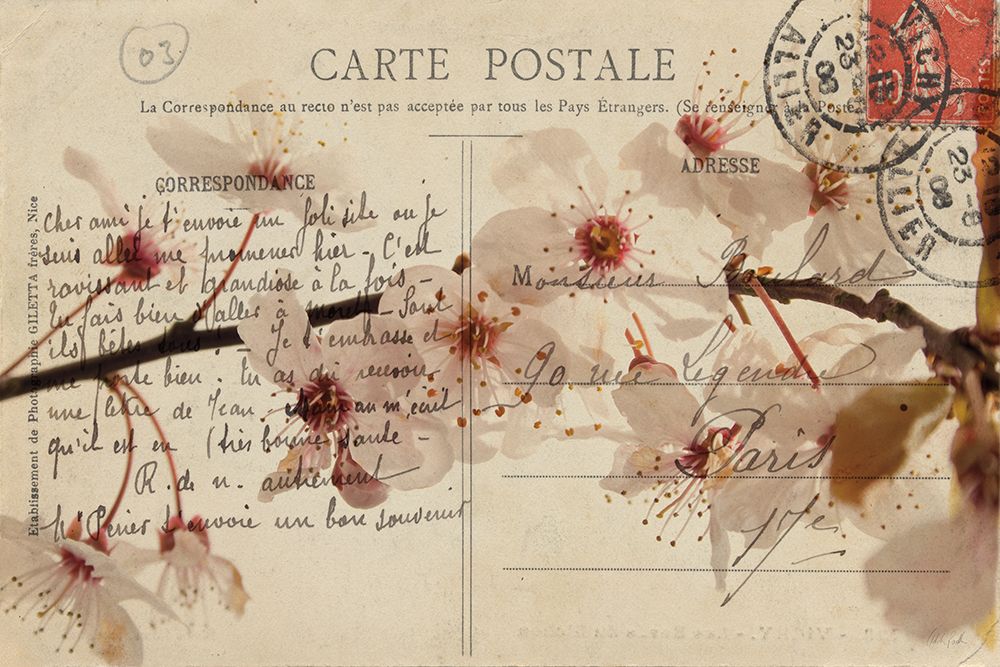 03
CARTE POSTALE
La Correspondance au recto n'est pas acceptée par tous les Pays Étrangers. (Se renseigner à la Poste
CORRESPONDANCE
Cher ami je t'envoie un joli site ou je
suis allé me promener hier - C'est
ravissant et grandiose à la fois -
Tu fais bien d'aller à - Sont
ils bêtes tous ! - Je t'embrasse et
me porte bien. Tu as dû recevoir
une lettre de Jean - Maman m'écrit
qu'il est en (très bonne santé -
R. de n. autrement
t'envoie un bon souvenir
Etablissement de Photographie GILETTA frères, Nice
ADRESSE
Monsieur Boulard
90 rue Legendre
Paris
17e
VICHY
23-8
08
ALLIER
POSTES
23-8
08
ALLIER